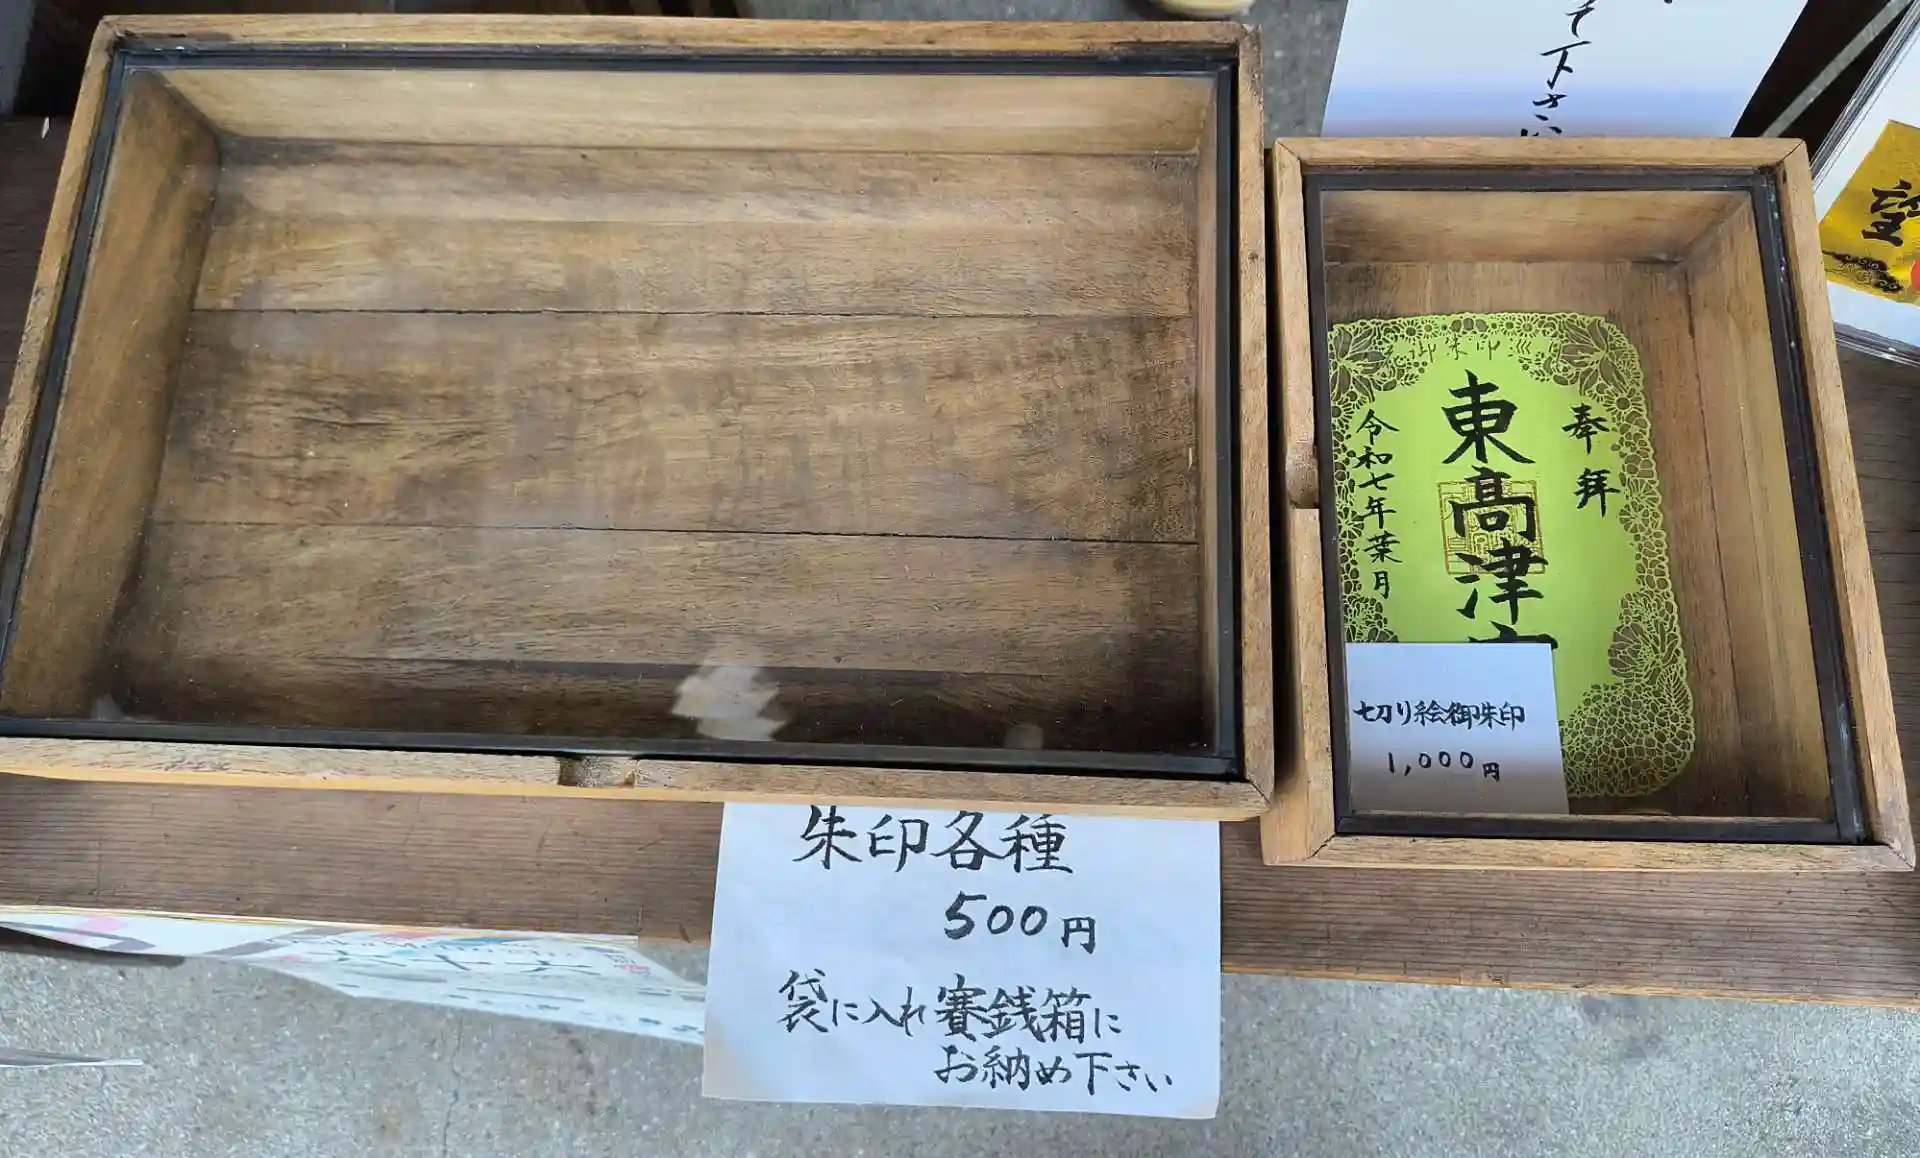 て下さい
望
御朱印
奉拝
東高津宮
令和七年葉月
切り絵御朱印
1,000円
朱印各種
500円
袋に入れ賽銭箱に
お納め下さい